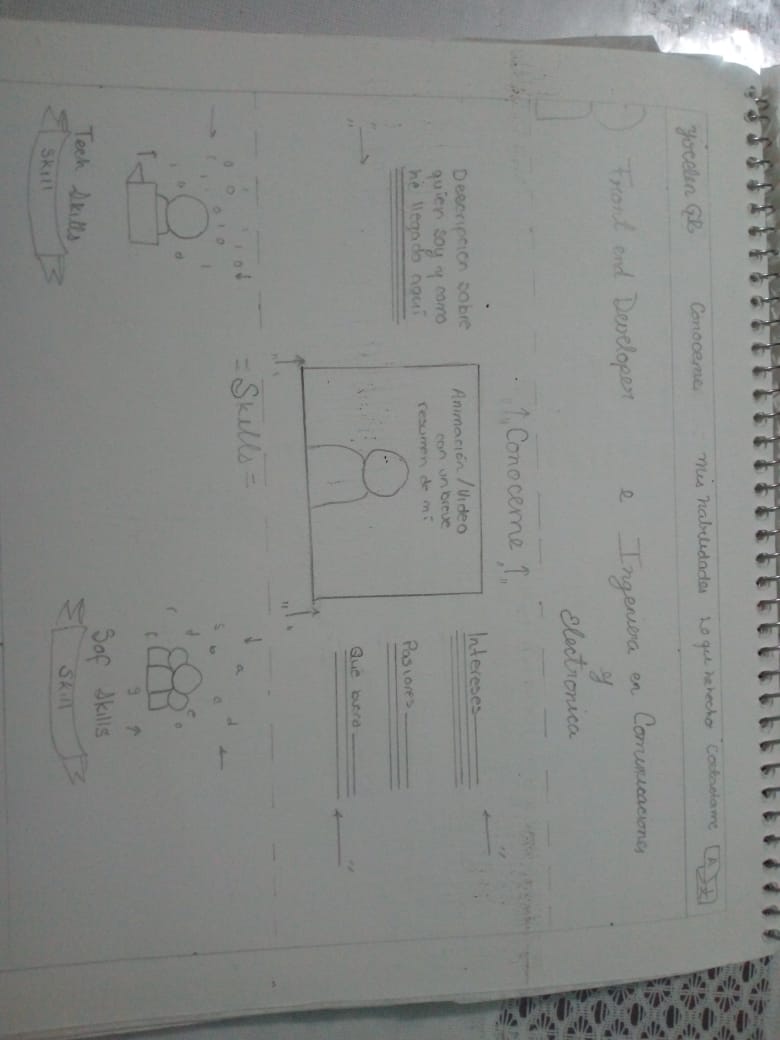 Yocelin GR Conoceme Mis habilidades Lo que he hecho Contactame A 文
Front end Developer e Ingeniera en Comunicaciones
y
Electronica
Conoceme
Descripcion sobre
quien soy y como
he llegado aqui
Animación/Video
con un breve
resumen de mi
Intereses
Pasiones
Que busco
= Skills =
Tech Skills
Skill
Sof Skills
Skill